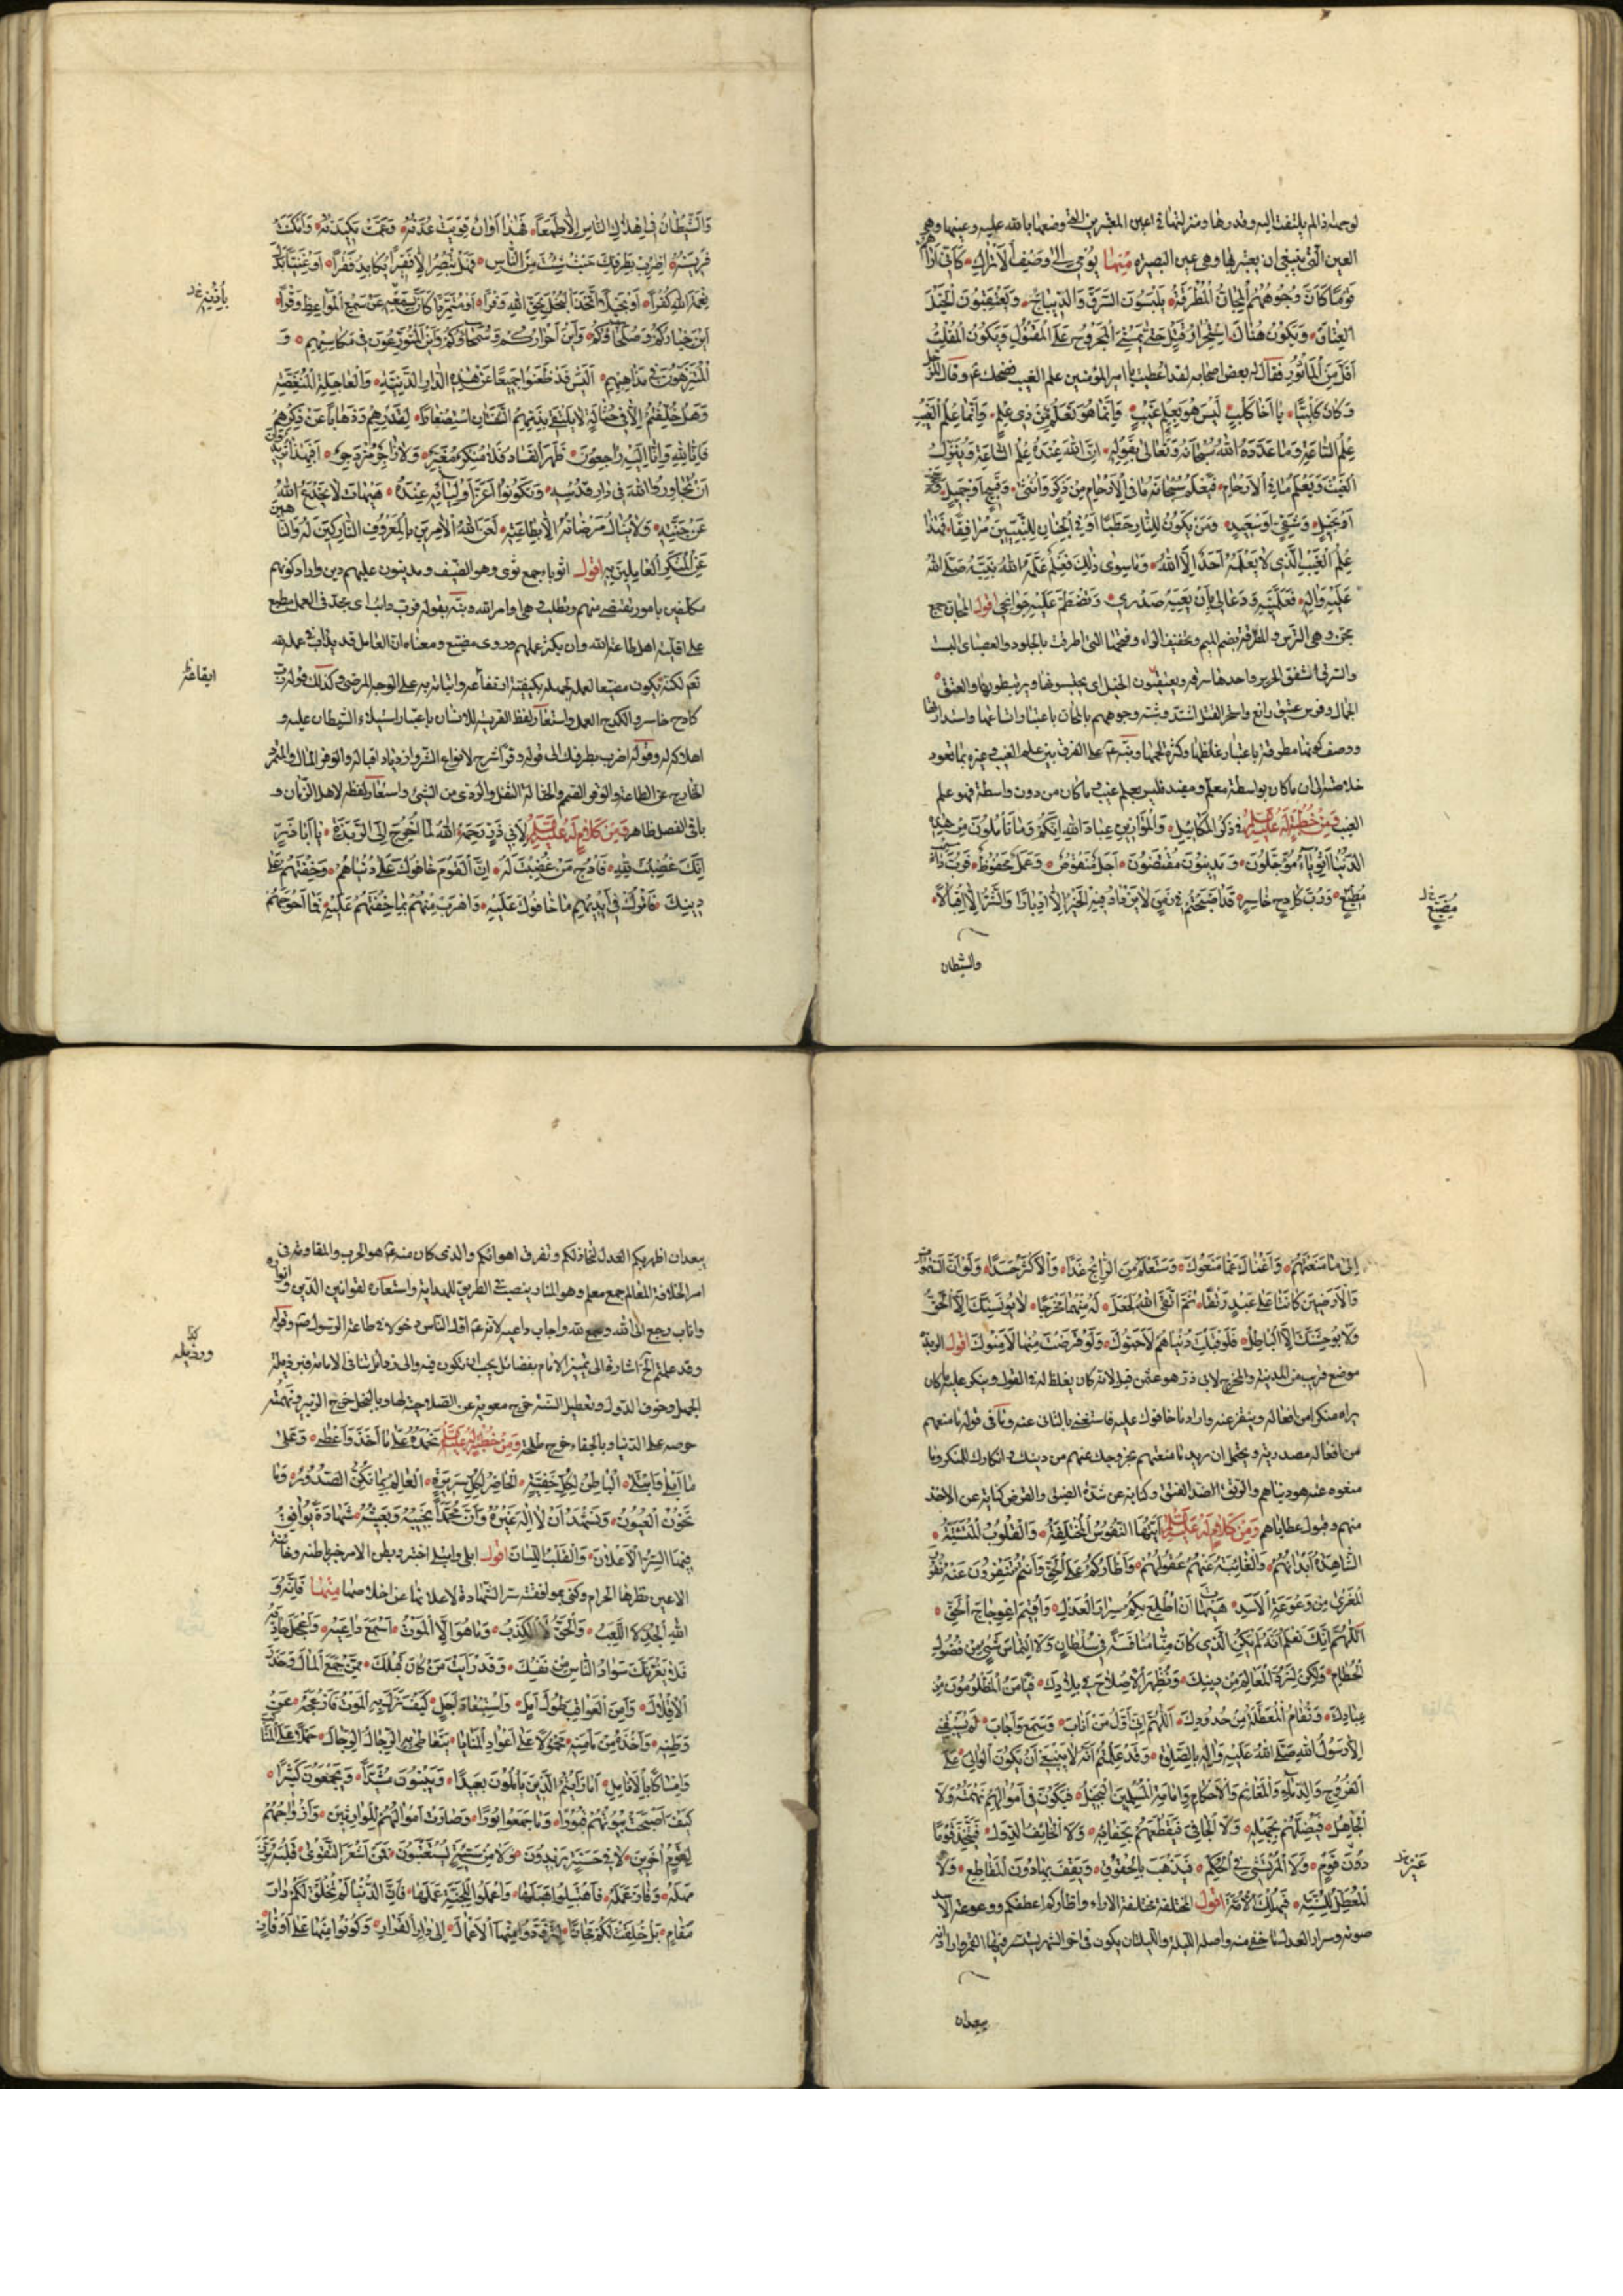 لوجهه اذ لم يلتفت اليه وقدرها ومنزلتها في اعين المغترين التي وضعها بالله عليه وعينها وهي
العين التي ينبغي ان يعتبر بها وهي عين البصيرة منها يومي الى وصف الاتراك كاني اراهم
قوما كان وجوههم المجان المطرقة يلبسون السرق والديباج ويعتقبون الخيل
العتاق ويكون هناك استحرار قتل حتى يمشي المجروح على المقتول ويكون المفلت
اقل من المأسور فقال له بعض اصحابه لقد اعطيت يا امير المؤمنين علم الغيب فضحك ع وقال للرجل
وكان كلبيا يا اخا كلب ليس هو بعلم غيب وانما هو تعلم من ذي علم وانما علم الغيب
علم الساعة وما عدده الله سبحانه وتعالى بقوله ان الله عنده علم الساعة وينزل
الغيث ويعلم ما في الارحام فيعلم سبحانه ما في الارحام من ذكر وانثى وقبيح او جميل وسخي
او بخيل وشقي او سعيد ومن يكون للنار حطبا او في الجنان للنبيين مرافقا فهذا
علم الغيب الذي لا يعلمه احد الا الله وما سوى ذلك فعلم علمه الله نبيه صلى الله
عليه واله فعلمنيه ودعا لي بان يعيه صدري وتضطم عليه جوانحي اقول المجان جمع
مجن وهي الترس والمطرقة بضم الميم وتخفيف الراء وفتحها التي اطرقت بالجلود والعصب اي البست
والسرق الشقق الحرير واحدها سرقه ويعتقبون الخيل اي يحتبسونها ويرتبطونها والعتيق
الجمال وفرس عتيق رائع واستحر القتل اشتد وشبه وجوههم بالمجان باعتبار اتساعها واستدارتها
ووصف كونها مطرقة باعتبار غلظها وكثرة لحمها ونبه ع على الفرق بين علم الغيب وغيره بما تعود
خلاصته الى ان ما كان بواسطة معلم ومفيد فليس بعلم غيب وما كان من دون واسطة فهو علم
الغيب ومن خطبة له عليه السلم في ذكر المكائيل والموازين عباد الله انكم وما تأملون من هذه
الدنيا اثوياء مؤجلون ومدينون مقتضون اجل منقوص وعمل محفوظ فرب دائب
مضيع ورب كادح خاسر قد اصبحتم في زمن لا يزداد فيه الخير الا ادبارا والشر الا اقبالا
مضيع
والشيطان
والشيطان في اهلاك الناس الا طمعا فهذا اوان قويت عدته وعمت مكيدته وامكنت
فريسته اضرب بطرفك حيث شئت من الناس فهل تبصر الا فقيرا يكابد فقرا او غنيا بدل
نعمة الله كفرا او بخيلا اتخذ البخل بحق الله وفرا او متمردا كان بسمعه عن سمع المواعظ وقرا
باذنيه
اين خياركم وصلحاؤكم واين احراركم وسمحاؤكم واين المتورعون في مكاسبهم و
المتنزهون في مذاهبهم اليس قد ظعنوا جميعا عن هذه الدار الدنية والعاجلة المنغصة
وهل خلقتم الا في حثالة لا يلتقي بذمهم الشفتان استصغارا لقدرهم وذهابا عن ذكرهم
فانا لله وانا اليه راجعون ظهر الفساد فلا منكر مغير ولا زاجر مزدجر افبهذا تريدون
ان تجاوروا الله في دار قدسه وتكونوا اعز اوليائه عنده هيهات لا يخدع الله
عن جنته ولا ينال مرضاته الا بطاعته لعن الله الامرين بالمعروف التاركين له والناهين
عن المنكر العاملين به اقول اثوياء جمع ثوي وهو الضيف ومدينون عليهم دين واراد كونهم
مكلفين بامور يقتضي منهم ويطلب وهي اوامر الله ونبه بقوله فرب دائب اي مجد في العمل مضيع
على اقلية اهل طاعة الله وان يكثر عملهم وروى مضيع ومعناه ان العامل قد يداب في عمله لله
تعم لكنه يكون مضيعا لعمله لجهله بكيفية ايقاعه واتيانه به على الوجه المرضي وكذلك قوله ورب
ايقاعه
كادح خاسر والكدح العمل واستعار لفظ الفريسة للانسان باعتبار استيلاء الشيطان عليه و
اهلاكه له وقوله اضرب بطرفك الى قوله وقرا شرح لانواع الشر وازدياد اقباله والوفر المال والمتمرد
الخارج عن الطاعة والوقر الصمم والحثالة الثفل والردي من الشيء واستعار لفظه لاهل الزمان و
باقي الفصل ظاهر ومن كلام له عليه السلم لابي ذر رحمه الله لما اخرج الى الربذة يا ابا ذر
انك غضبت لله فارج من غضبت له ان القوم خافوك على دنياهم وخفتهم على
دينك فاترك في ايديهم ما خافوك عليه واهرب منهم بما خفتهم عليه فما احوجهم
الى ما منعتهم واغناك عما منعوك وستعلم من الرابح غدا والاكثر حسدا ولو ان السموات
والارضين كانتا على عبد رتقا ثم اتقى الله لجعل له منهما مخرجا لا يونسنك الا الحق
ولا يوحشنك الا الباطل فلو قبلت دنياهم لاحبوك ولو قرضت منها لامنوك اقول الربذة
موضع قريب من المدينة والمخرج لابي ذر هو عثمن قيل لانه كان يغلظ له في القول وينكر عليه ما كان
يراه منكرا من افعاله وينفر عنه واراد ما خافوك عليه فاستغني بالثاني عنه وما في قوله ما منعتهم
من افعاله مصدرية ويحتمل ان يريد ما منعتهم بخروجك عنهم من دينك وانكارك للمنكر وما
منعوه عنه هو دنياهم والرتق الضد الفتق وكنايه عن شدة الضيق والقرض كناية عن الاخذ
منهم وقبول عطاياهم ومن كلام له عليه السلم ايتها النفوس المختلفة والقلوب المتشتتة
الشاهدة ابدانهم والغائبة عنهم عقولهم واظأركم على الحق وانتم تنفرون عنه نفور
المعزى من وعوعة الاسد هيهات ان اطلع بكم سرار العدل واقيم اعوجاج الحق
اللهم انك تعلم انه لم يكن الذي كان منا منافسة في سلطان ولا التماس شيء من فضول
الحطام ولكن لنرد المعالم من دينك ونظهر الاصلاح في بلادك فيامن المظلومون من
عبادك وتقام المعطلة من حدودك اللهم اني اول من اناب وسمع واجاب لم يسبقني
الا رسول الله صلى الله عليه واله بالصلوة وقد علمتم انه لا ينبغي ان يكون الوالي على
الفروج والدماء والمغانم والاحكام وامامة المسلمين البخيل فيكون في اموالهم نهمته ولا
الجاهل فيضلهم بجهله ولا الجافي فيقطعهم بجفائه ولا الخائف الدول فيتخذ قوما
دون قوم ولا المرتشي في الحكم فيذهب بالحقوق ويقف بها دون المقاطع ولا
المعطل للسنة فيهلك الامة اقول المختلفة مختلفة الاراء واظأركم اعطفكم ووعوعة الاسد
صوته وسرار العدل ما خفي منه واصله الليلة والليلتان يكون في اخر الشهر يستتر فيها القمر واراد انه
يبعدان
يبعدان اظهر بكم العدل لتخاذلكم وتفرق اهوائكم والذي كان منه ع هو الحرب والمقاومة في
امر الخلافة المعالم جمع معلم وهو المنار ينصب في الطريق للهداية واستعاره لقوانين الدين وانواره
واناب رجع الى الله وسمع لله واجاب داعيه لانه ع اول الناس دخولا في طاعة الرسول ص وقوله
وقد علمتم الخ اشارة الى تميز الامام بفضائل يجب ان تكون فيه والى رذائل تنافي الامامة فبرذيلة
كذا
ورذيله
الجهل وخوف الدول وتعطيل السنة خرج معوية عن الصلاحية لها وبالبخل خرج الزبير ونهمته
حرصه على الدنيا وبالجفاء خرج طلحة ومن خطبة له عليه السلم نحمده على ما اخذ واعطى وعلى
ما ابلى وابتلى الباطن لكل خفية الحاضر لكل سريرة العالم بما تكن الصدور وما
تخون العيون ونشهد ان لا اله غيره وان محمدا نجيبه وبعيثه شهادة يوافق
فيها السر الاعلان والقلب اللسان اقول ابلى وابتلى اختبر وبطن الامر خبر باطنه وخائنة
الاعين نظرها الحرام وكنى بموافقة سر الشهادة لاعلانها عن اخلاصها منها فانه و
الله الجد لا اللعب والحق لا الكذب وما هو الا الموت اسمع داعيه واعجل حاديه
فلا يغرنك سواد الناس من نفسك وقد رايت من كان قبلك ممن جمع المال وحذر
الاقلال وامن العواقب طول امل واستبعاد اجل كيف نزل به الموت فازعجه عن
وطنه واخذه من مأمنه محمولا على اعواد المنايا يتعاطى به الرجال الرجال حملا على المناكب
وامساكا بالانامل اما رايتم الذين يأملون بعيدا ويبنون مشيدا ويجمعون كثيرا
كيف اصبحت بيوتهم قبورا وما جمعوا بورا وصارت اموالهم للوارثين وازواجهم
لقوم اخرين لا في حسنة يزيدون ولا من سيئة يستعتبون فمن اشعر التقوى قلبه برز
مهله وفاز عمله فاهتبلوا هبلها واعملوا للجنة عملها فان الدنيا لم تخلق لكم دار
مقام بل خلقت لكم مجازا لتزودوا منها الاعمال الى دار القرار وكونوا منها على اوفاز